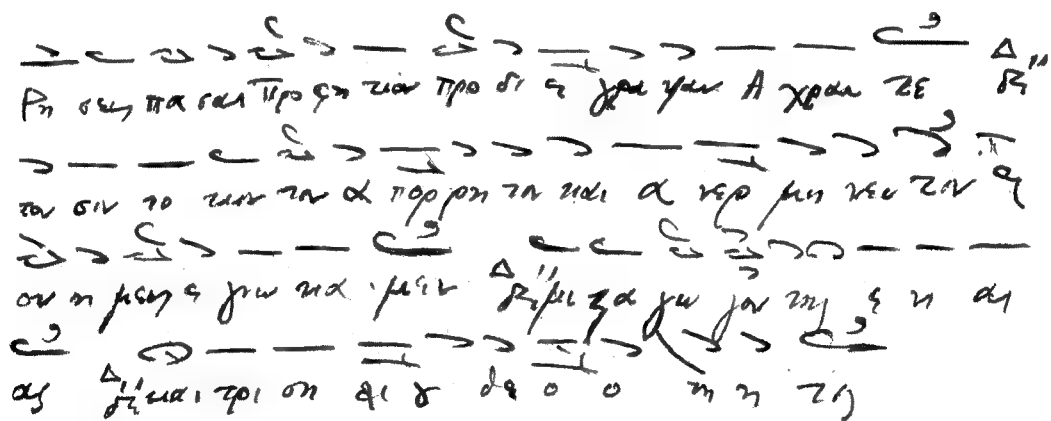 Ρη σεις πα σαι Προ φη των προ δι ε γρα ψαν Α χραν τε
τον σον το κον τον α πορ ρη τον και α νερ μη νευ τον
ον η μεις ε γνω κα μεν μυ στα γω γον της ε νι αι
ας και τρι ση δε ο ο τη η τος